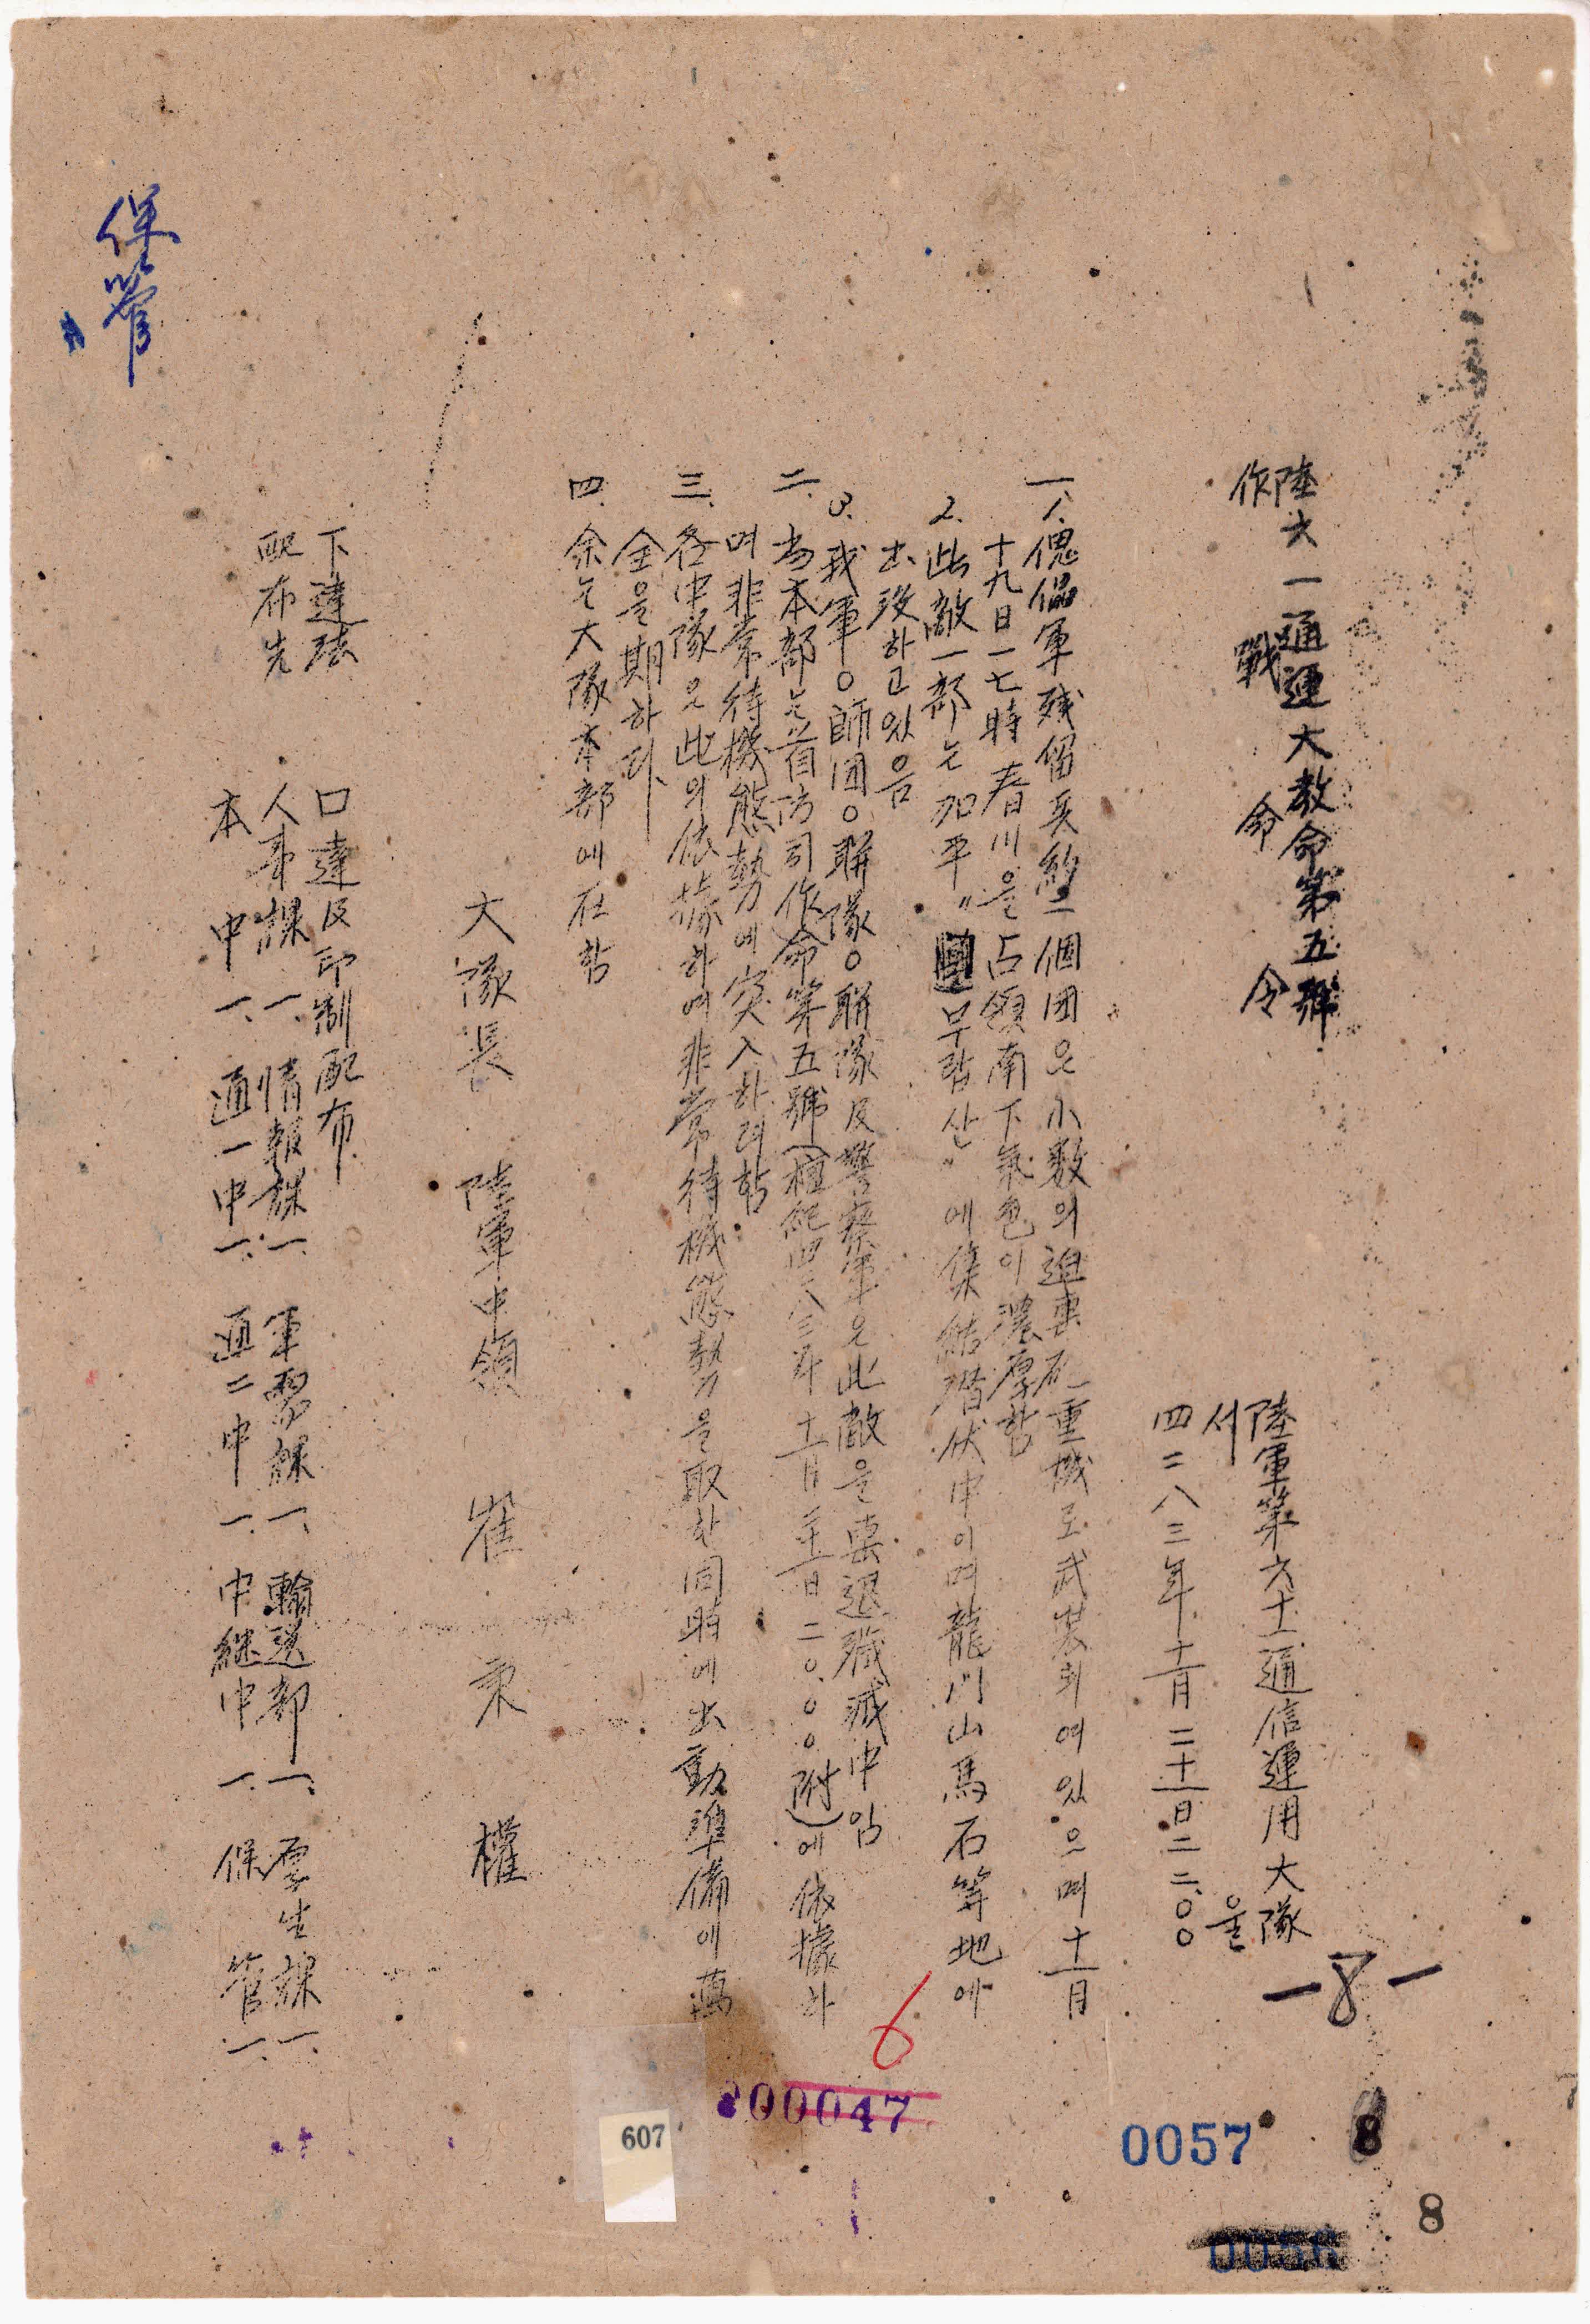 陸六一通運大敎命第五號
作戰命令
陸軍第六十一通信運用大隊
서울
四二八三年十一月二十一日二二.〇〇
一、1. 傀儡軍殘留兵約二個団은小数의迫擊砲重機로武裝되여있으며十一月
十九日一七時春川을占領南下氣色이濃厚함
2. 此敵一部는加平〃무람산〃에集結潛伏中이며龍門山馬石等地에
出没하고있음
3. 我軍〇師団〇聯隊〇聯隊及警察軍은此敵을擊退殲滅中임
二、当本部는首防司作命第五號(檀紀四二八三年十一月二十一日二〇.〇〇附)에依據하
며非常待機態勢에突入하려함
三、各中隊은此의依據하여非常待機態勢을取함同時에出動準備에萬
全을期하라
四、余는大隊本部에在함
大隊長 陸軍中領 崔秉權
下達法 口達及印刷配布
配布先 人事課一、情報課一、軍需課一、輸送部一、厚生課一、
本中一、通一中一、通二中一、中継中一、保管一、
保管
-8-
6
000047
607
0057
8
8